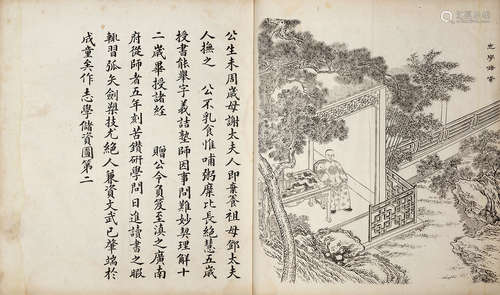 公生未周歲母謝太夫人即棄養祖母鄧太夫
人撫之 公不乳食惟哺粥糜比長絕慧五歲
授書能舉字義詰塾師因事問難妙契理解十
二歲畢授諸經 贈公今負笈至滇之廣南
府從師者五年刻苦鑽研學問日進讀書之暇
執習弧矢劍槊技尤絕人蓋資文武已肇端於
成童矣作志學儲資圖第二
志學儲資